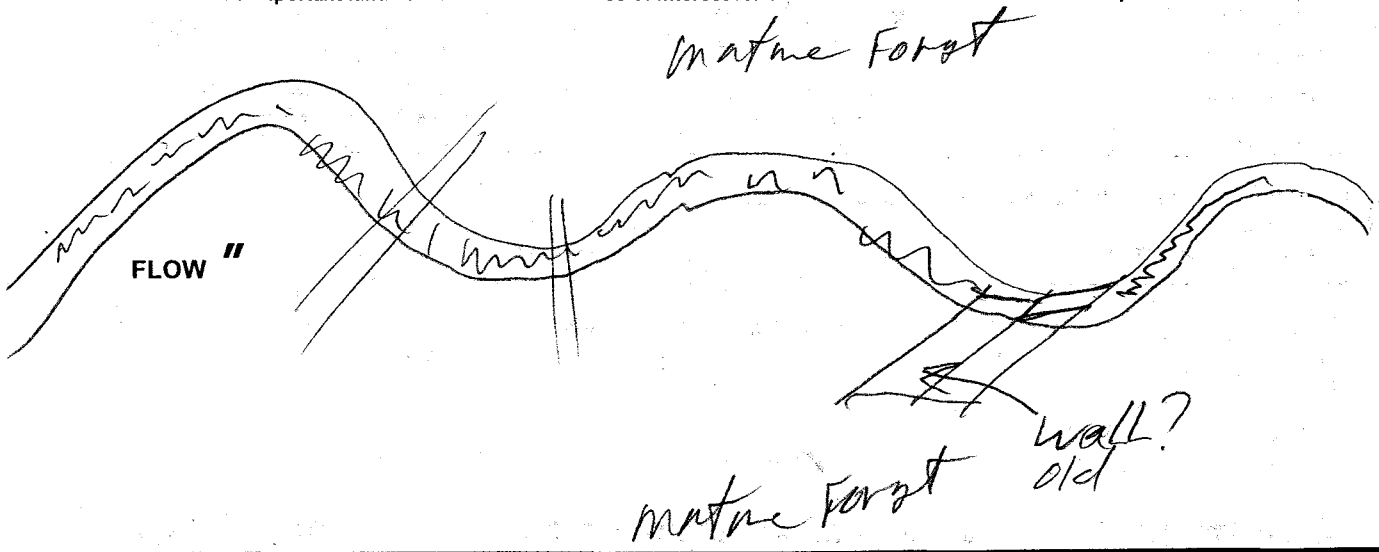 mature Forest
FLOW "
wall?
old
mature Forest